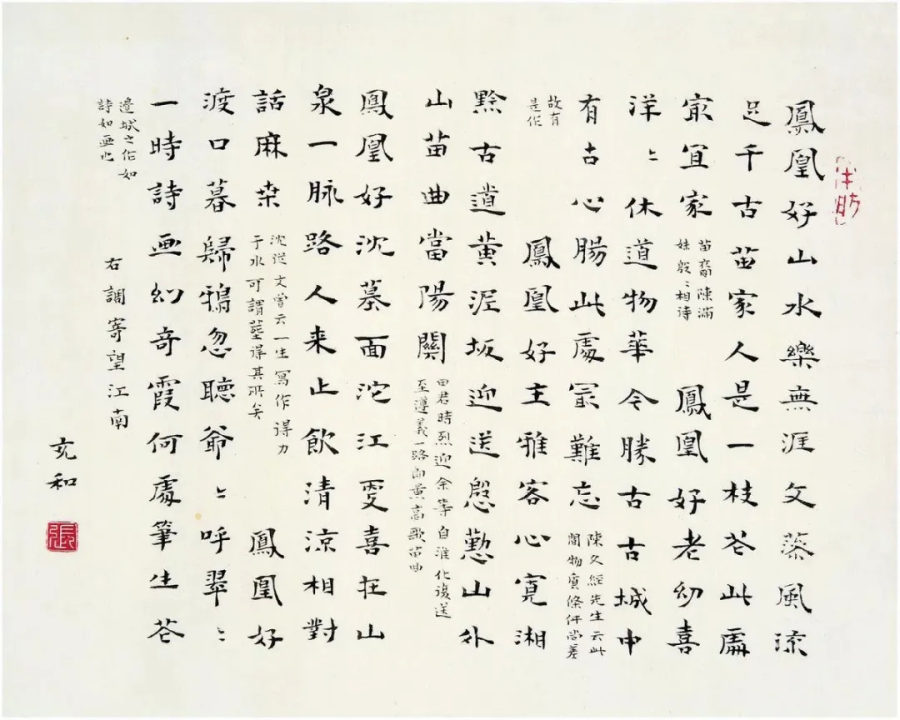 鳳凰好山水樂無涯文藻風流
足千古苗家人是一枝花此處
冣宜家
苗裔陳滿
妹殷〻相待
鳳凰好老幼喜
洋〻休道物華今勝古古城中
有古心腸此處冣難忘
陳久經先生云此
間物質條件尚差
故有
是作
鳳凰好主雅客心寬湘
黔古道黄泥坂迎送慇懃山外
山苗曲當陽關
田君時烈迎余等自淮化復送
至遵義一路向黄高歌苗曲
鳳凰好沈墓面沱江更喜在山
泉一脉路人来止飲清涼相對
話麻桒
沈從文曾云一生寫作得力
于水可謂塟得其所矣
鳳凰好
渡口暮歸鴉忽聽爺〻呼翠〻
一時詩画幻奇霞何處筆生花
邊城之作如
詩如画也
右調寄望江南
充和
張